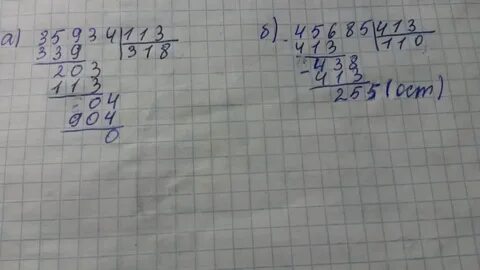 а) 35934 113
339 318
203
113
904
904
0
б) 45685 413
413 110
- 438
413
255 (ост)